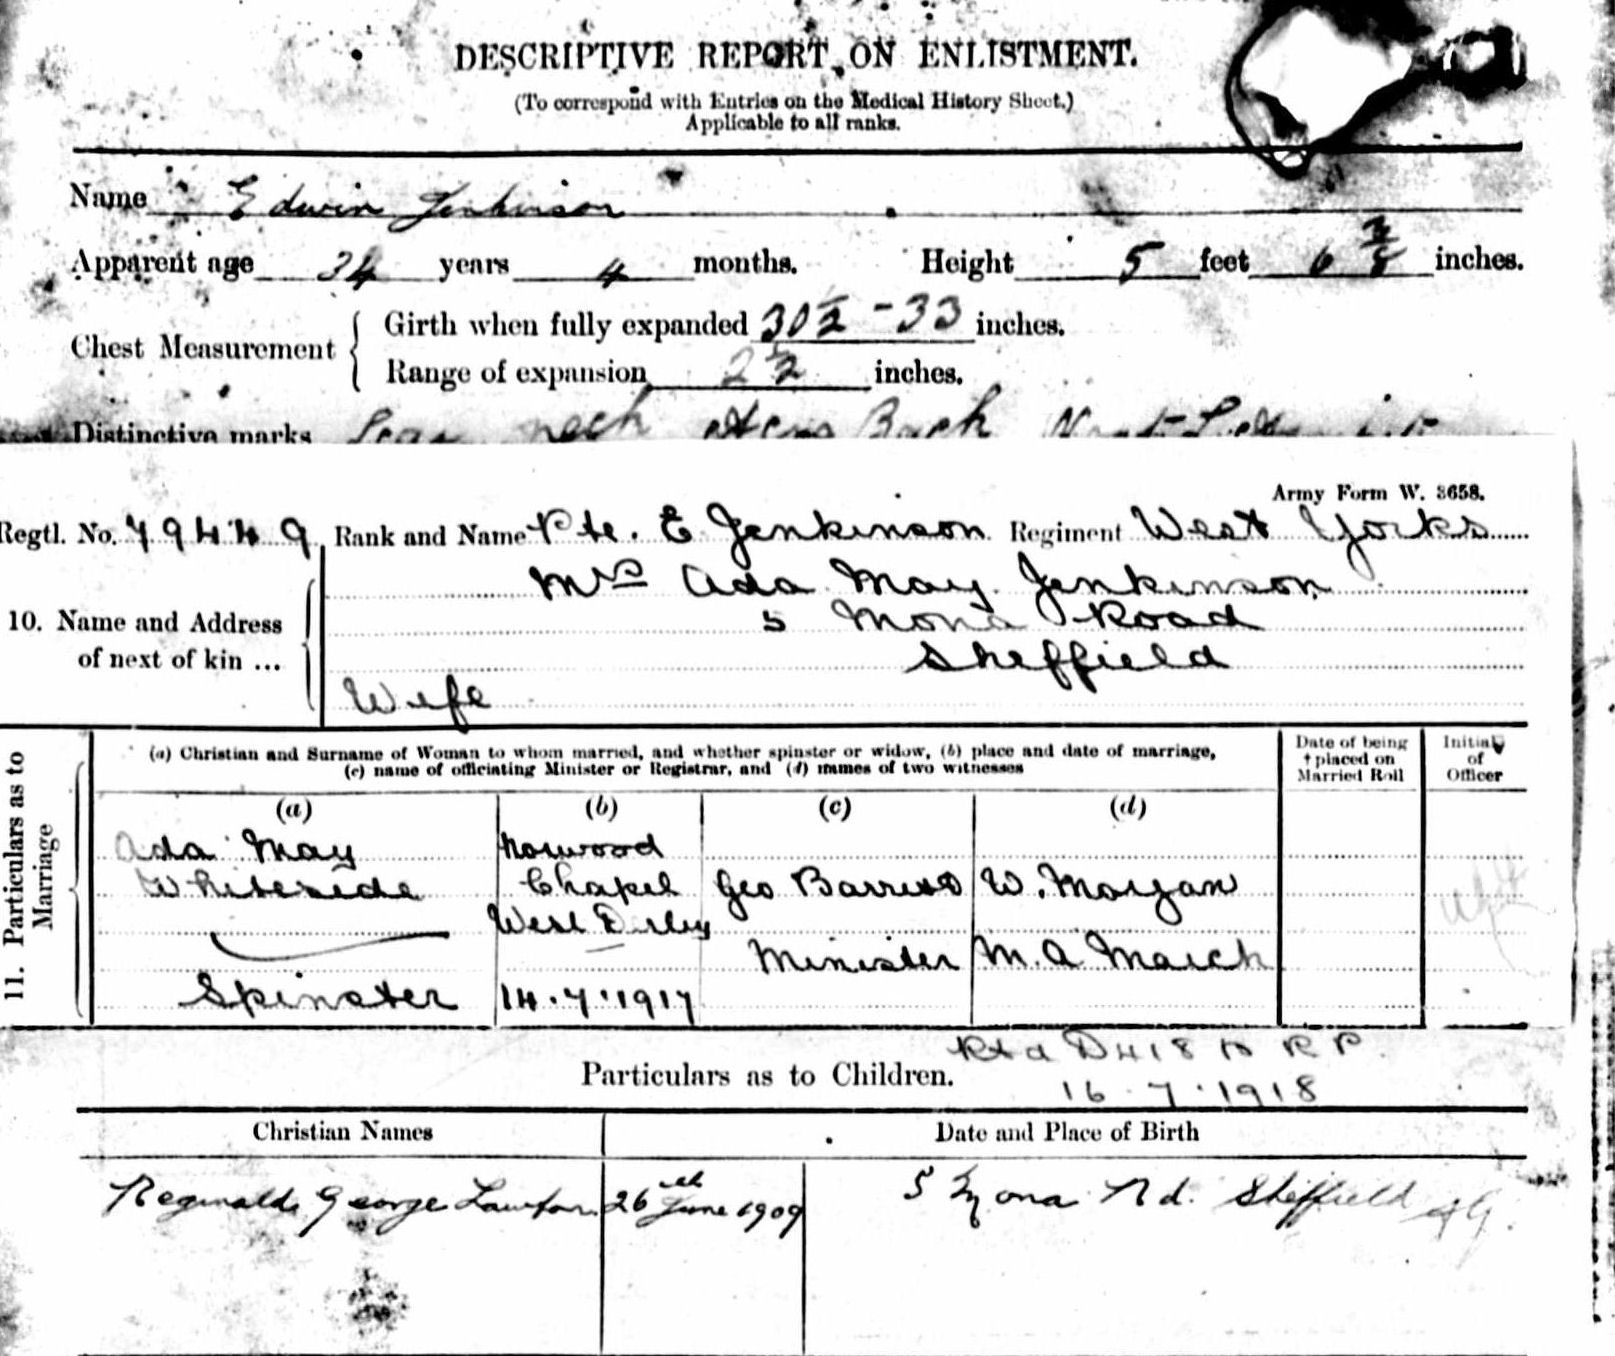 DESCRIPTIVE REPORT ON ENLISTMENT.
(To correspond with Entries on the Medical History Sheet.)
Applicable to all ranks.
Name Edwin Jenkinson
Apparent age 34 years 4 months. Height 5 feet 6 3/8 inches.
Chest Measurement { Girth when fully expanded 30½ - 33 inches.
Range of expansion 2½ inches.
Distinctive marks Scar neck Back
Army Form W. 3658.
Regtl. No. 79449 Rank and Name Pte. E Jenkinson Regiment West Yorks
Mrs Ada May Jenkinson
10. Name and Address 5 Mona Road
of next of kin ... Sheffield
Wife
11. Particulars as to Marriage
(a) Christian and Surname of Woman to whom married, and whether spinster or widow, (b) place and date of marriage,
(c) name of officiating Minister or Registrar, and (d) names of two witnesses
Date of being † placed on Married Roll
Initial of Officer
(a) (b) (c) (d)
Ada May Norwood
Whiteside Chapel Geo W. Morgan
West Derby
Minister M. A. March
Spinster 14.7.1917
D418 R P.
Particulars as to Children. 16.7.1918
Christian Names Date and Place of Birth
Reginald George Lawton 26th June 1909 5 Mona Rd. Sheffield